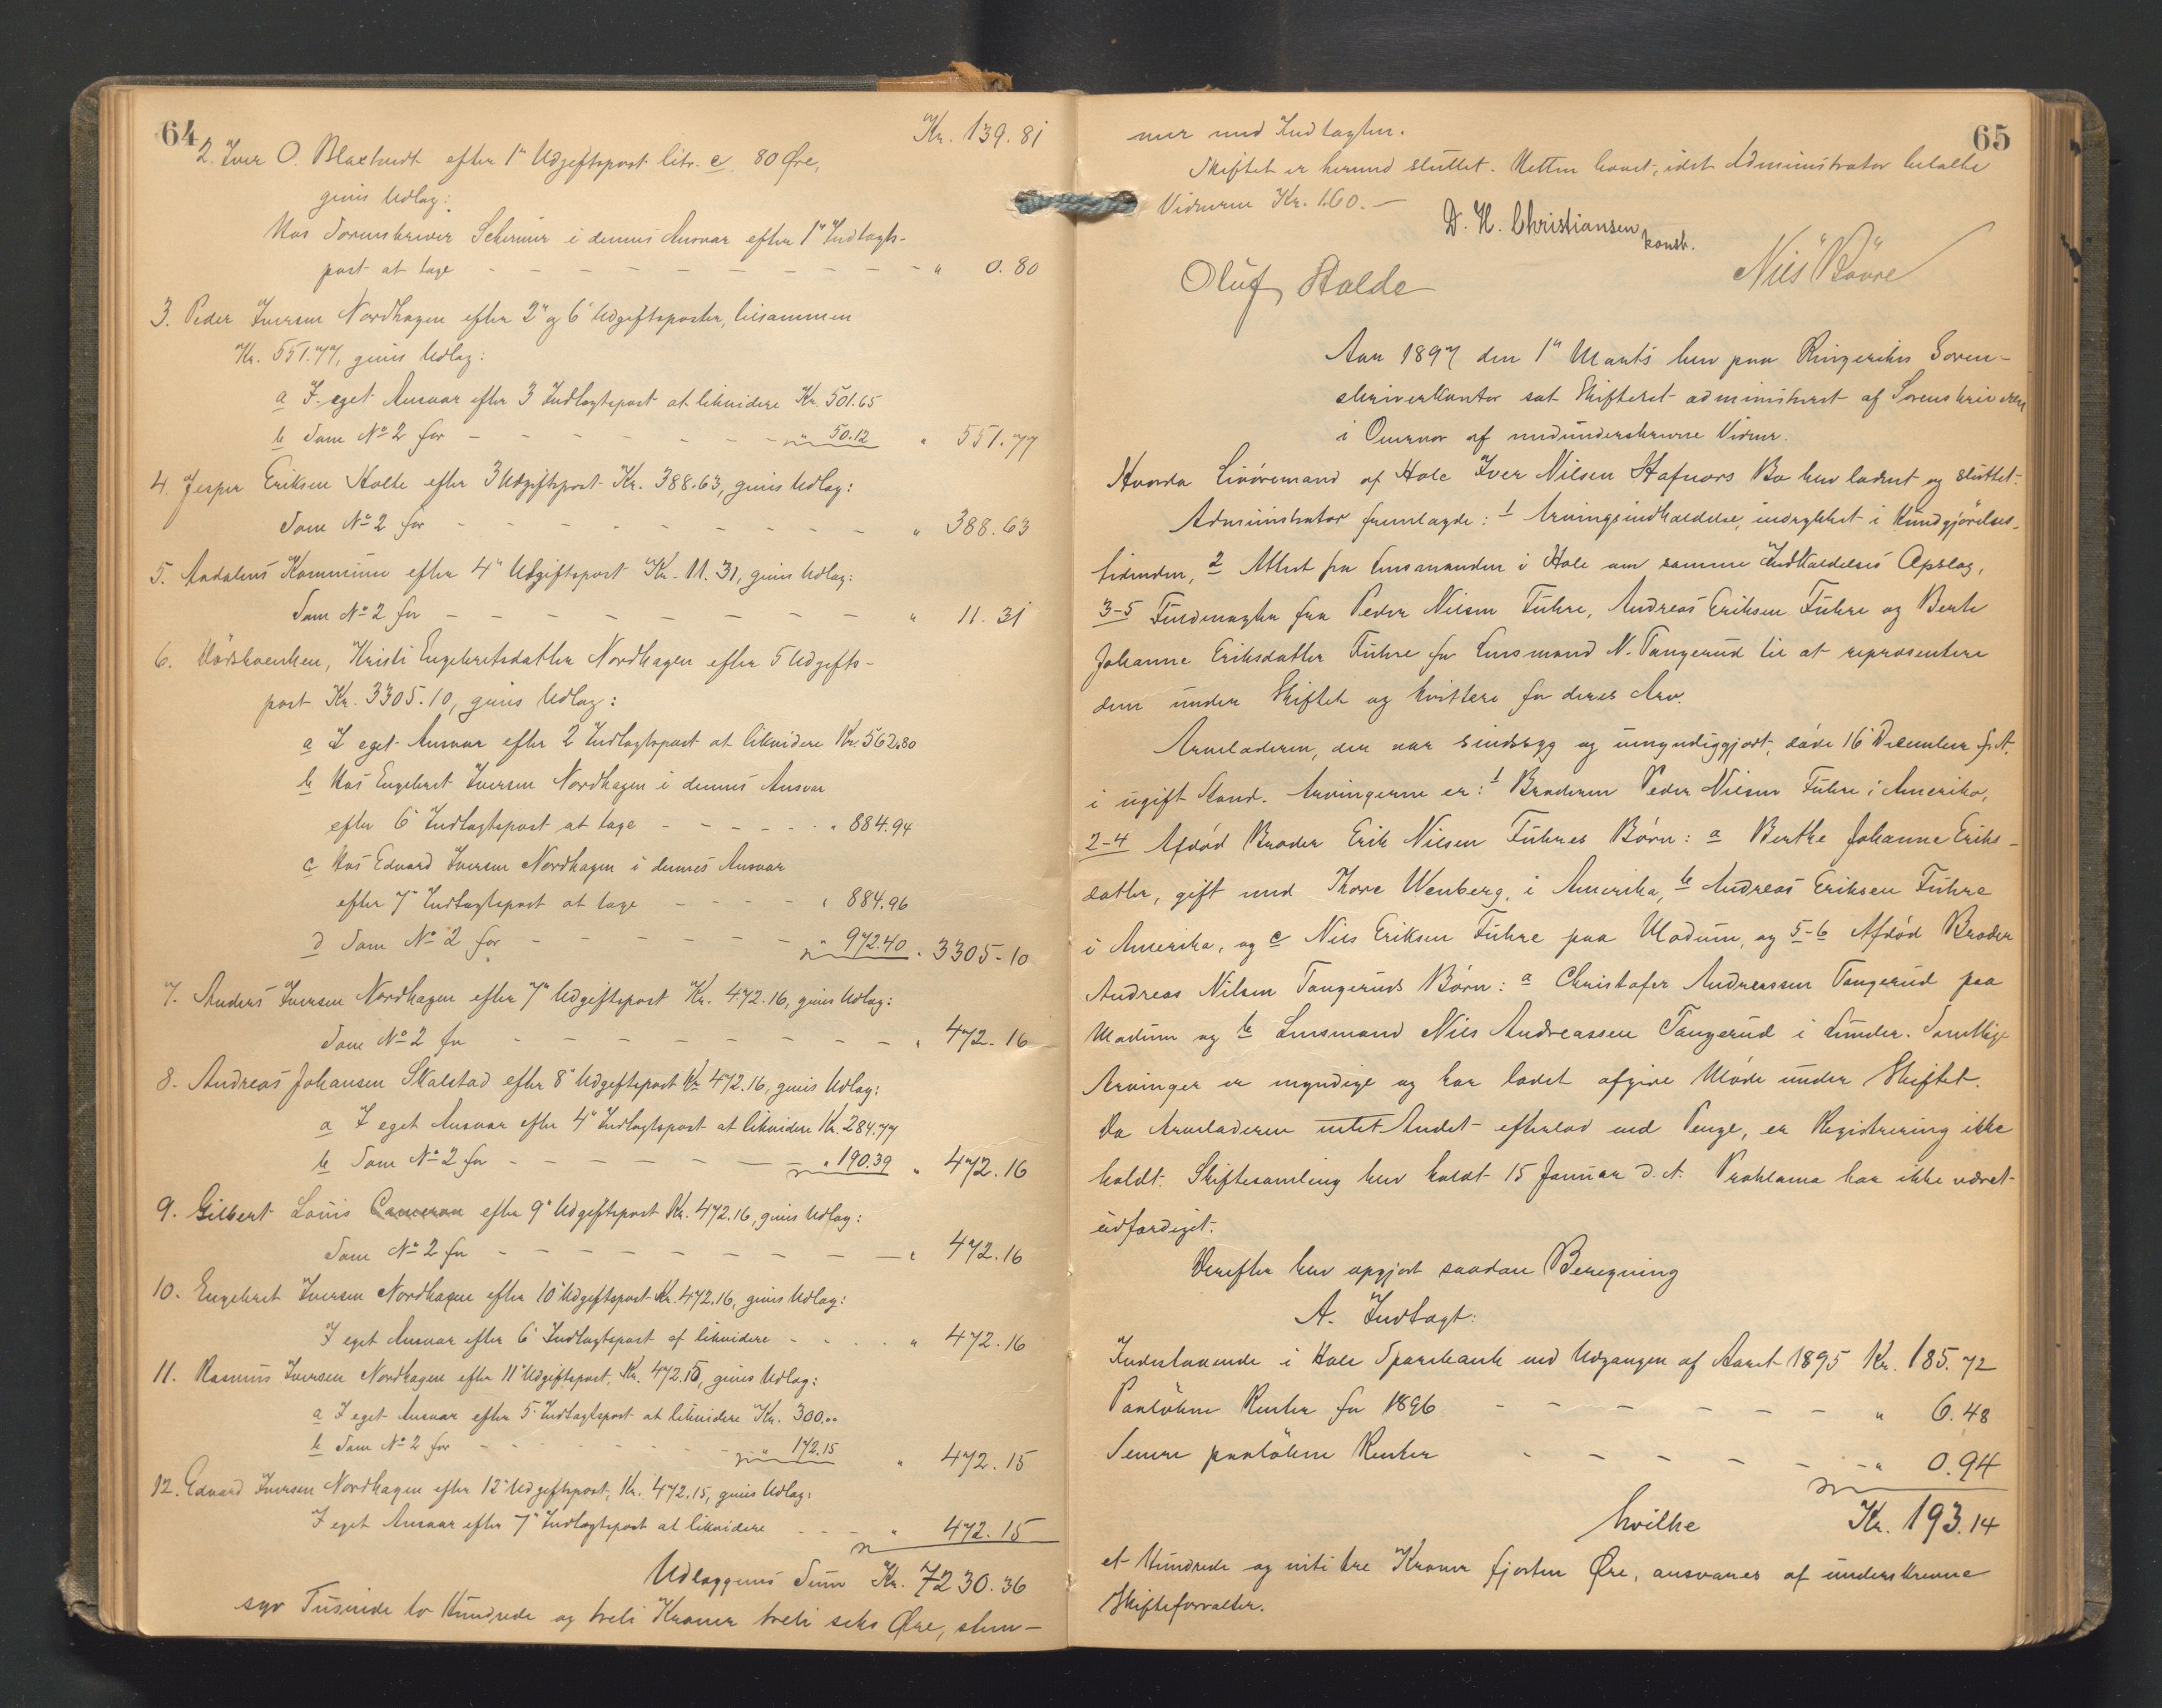 64
Kr. 139.81
2. Iver O. Blaxtvedt efter 1ste Udgiftspost litr. c. 80 Øre,
givis Udlæg:
Hos Sorenskriver Scheiner i dennes Ansvar efter 1ste Indtægts-
post at tage - - - " 0.80
3. Peder Iversen Nordhagen efter 2den og 6te Udgiftsposter, tilsammen
Kr. 551.77, givis Udlæg:
a I eget Ansvar efter 3 Indtægtspost at likvidere Kr. 501.65
b Som No 2 for - - - " 50.12 " 551.77
4. Jesper Eriksen Holte efter 3 Udgiftspost Kr. 388.63, givis Udlæg:
Som No 2 for - - - " 388.63
5. Aadalens Kommune efter 4de Udgiftspost Kr. 11.31, givis Udlæg:
Som No 2 for - - - " 11.31
6. Kristi Engebretsdatter Nordhagen efter 5 Udgifts-
post Kr. 3305.10, givis Udlæg:
a I eget Ansvar efter 2 Indtægtspost at likvidere Kr. 562.80
b Hos Engebret Iversen Nordhagen i dennes Ansvar
efter 6 Indtægtspost at tage - - - " 884.94
c Hos Edvard Iversen Nordhagen i dennes Ansvar
efter 7de Indtægtspost at tage - - - " 884.96
d Som No 2 for - - - " 972.40 " 3305.10
7. Anders Iversen Nordhagen efter 7de Udgiftspost Kr. 472.16, givis Udlæg:
Som No 2 for - - - " 472.16
8. Andreas Johansen Skalstad efter 8de Udgiftspost Kr 472.16, givis Udlæg:
a I eget Ansvar efter 4de Indtægtspost at likvidere Kr. 284.77
b Som No 2 for - - - " 190.39 " 472.16
9. Gilbert Louis Cameron efter 9de Udgiftspost Kr. 472.16, givis Udlæg:
Som No 2 for - - - " 472.16
10. Engebret Iversen Nordhagen efter 10de Udgiftspost Kr. 472.16, givis Udlæg:
I eget Ansvar efter 6te Indtægtspost at likvidere - - - " 472.16
11. Rasmus Iversen Nordhagen efter 11te Udgiftspost, Kr. 472.15, givis Udlæg:
a I eget Ansvar efter 5 Indtægtspost at likvidere Kr. 300.00
b Som No 2 for - - - " 172.15 " 472.15
12. Edvard Iversen Nordhagen efter 12te Udgiftspost, Kr. 472.15, givis Udlæg:
I eget Ansvar efter 7de Indtægtspost at likvidere - - - " 472.15
Udlæggenes Sum Kr. 7230.36
syv Tusinde to Hundrede og treti Kroner treti seks Øre, stem-
65
mer med Indtægten.
Skiftet er hermed sluttet. Retten hævet, idet Administrator betalte
Vidnerne Kr. 1.60. -
D. H. Christiansen
konst.
Oluf Halde
Nils Bovre
Aar 1897 den 1ste Marts blev paa Ringerikes Soren-
skriverkontor sat Skifteret administreret af Sorenskriveren
i Overvær af medunderskrevne Vidner.
Hvorda Livöremand af Hole Iver Nilsen Stafnors Bo blev ladent og sluttet.
Administrator fremlagde: 1 Arvingsindkaldelse, indrykket i Kundgjörelses-
tidenden, 2 Attest fra Lensmanden i Hole om samme Indkaldelses Opslag,
3-5 Fuldmagter fra Peder Nilsen Fuhre, Andreas Eriksen Fuhre og Berte
Johanne Eriksdatter Fuhre for Lensmand N. Tangerud til at repræsentere
dem under Skiftet og kvittere for deres Arv.
Arveladeren, der var sindssyg og umyndiggjort, döde 16 December f.A.
i ugift Stand. Arvingerne er: 1 Broderen Peder Nilsen Fuhre i Amerika,
2-4 Afdöd Broder Erik Nilsen Fuhres Börn: a Berthe Johanne Eriks-
datter, gift med Thore Wenberg, i Amerika, b Andreas Eriksen Fuhre
i Amerika, og c Nils Eriksen Fuhre paa Modum, og 5-6 Afdöd Broder
Andreas Nilsen Tangeruds Börn: a Christofer Andreassen Tangerud paa
Modum og b Lensmand Nils Andreassen Tangerud i Lunder. Samtlige
Arvinger er myndige og har ladet afgive Möde under Skiftet.
Da Arveladeren intet Andet efterlod end Penge, er Registrering ikke
holdt. Skiftesamling blev holdt 15 Januar d. A. Proklama har ikke været
udfærdiget.
Derefter blev opgjort saadan Beregning
A. Indtægt:
Indestaaende i Hole Sparebank ved Udgangen af Aaret 1895 Kr. 185.72
Paalöbne Renter for 1896 - - - " 6.48
Senere paalöbne Renter - - - " 0.94
hvilke Kr. 193.14
et Hundrede og niti tre Kroner fjorten Øre, ansvares af underskrevne
Skifteforvalter.